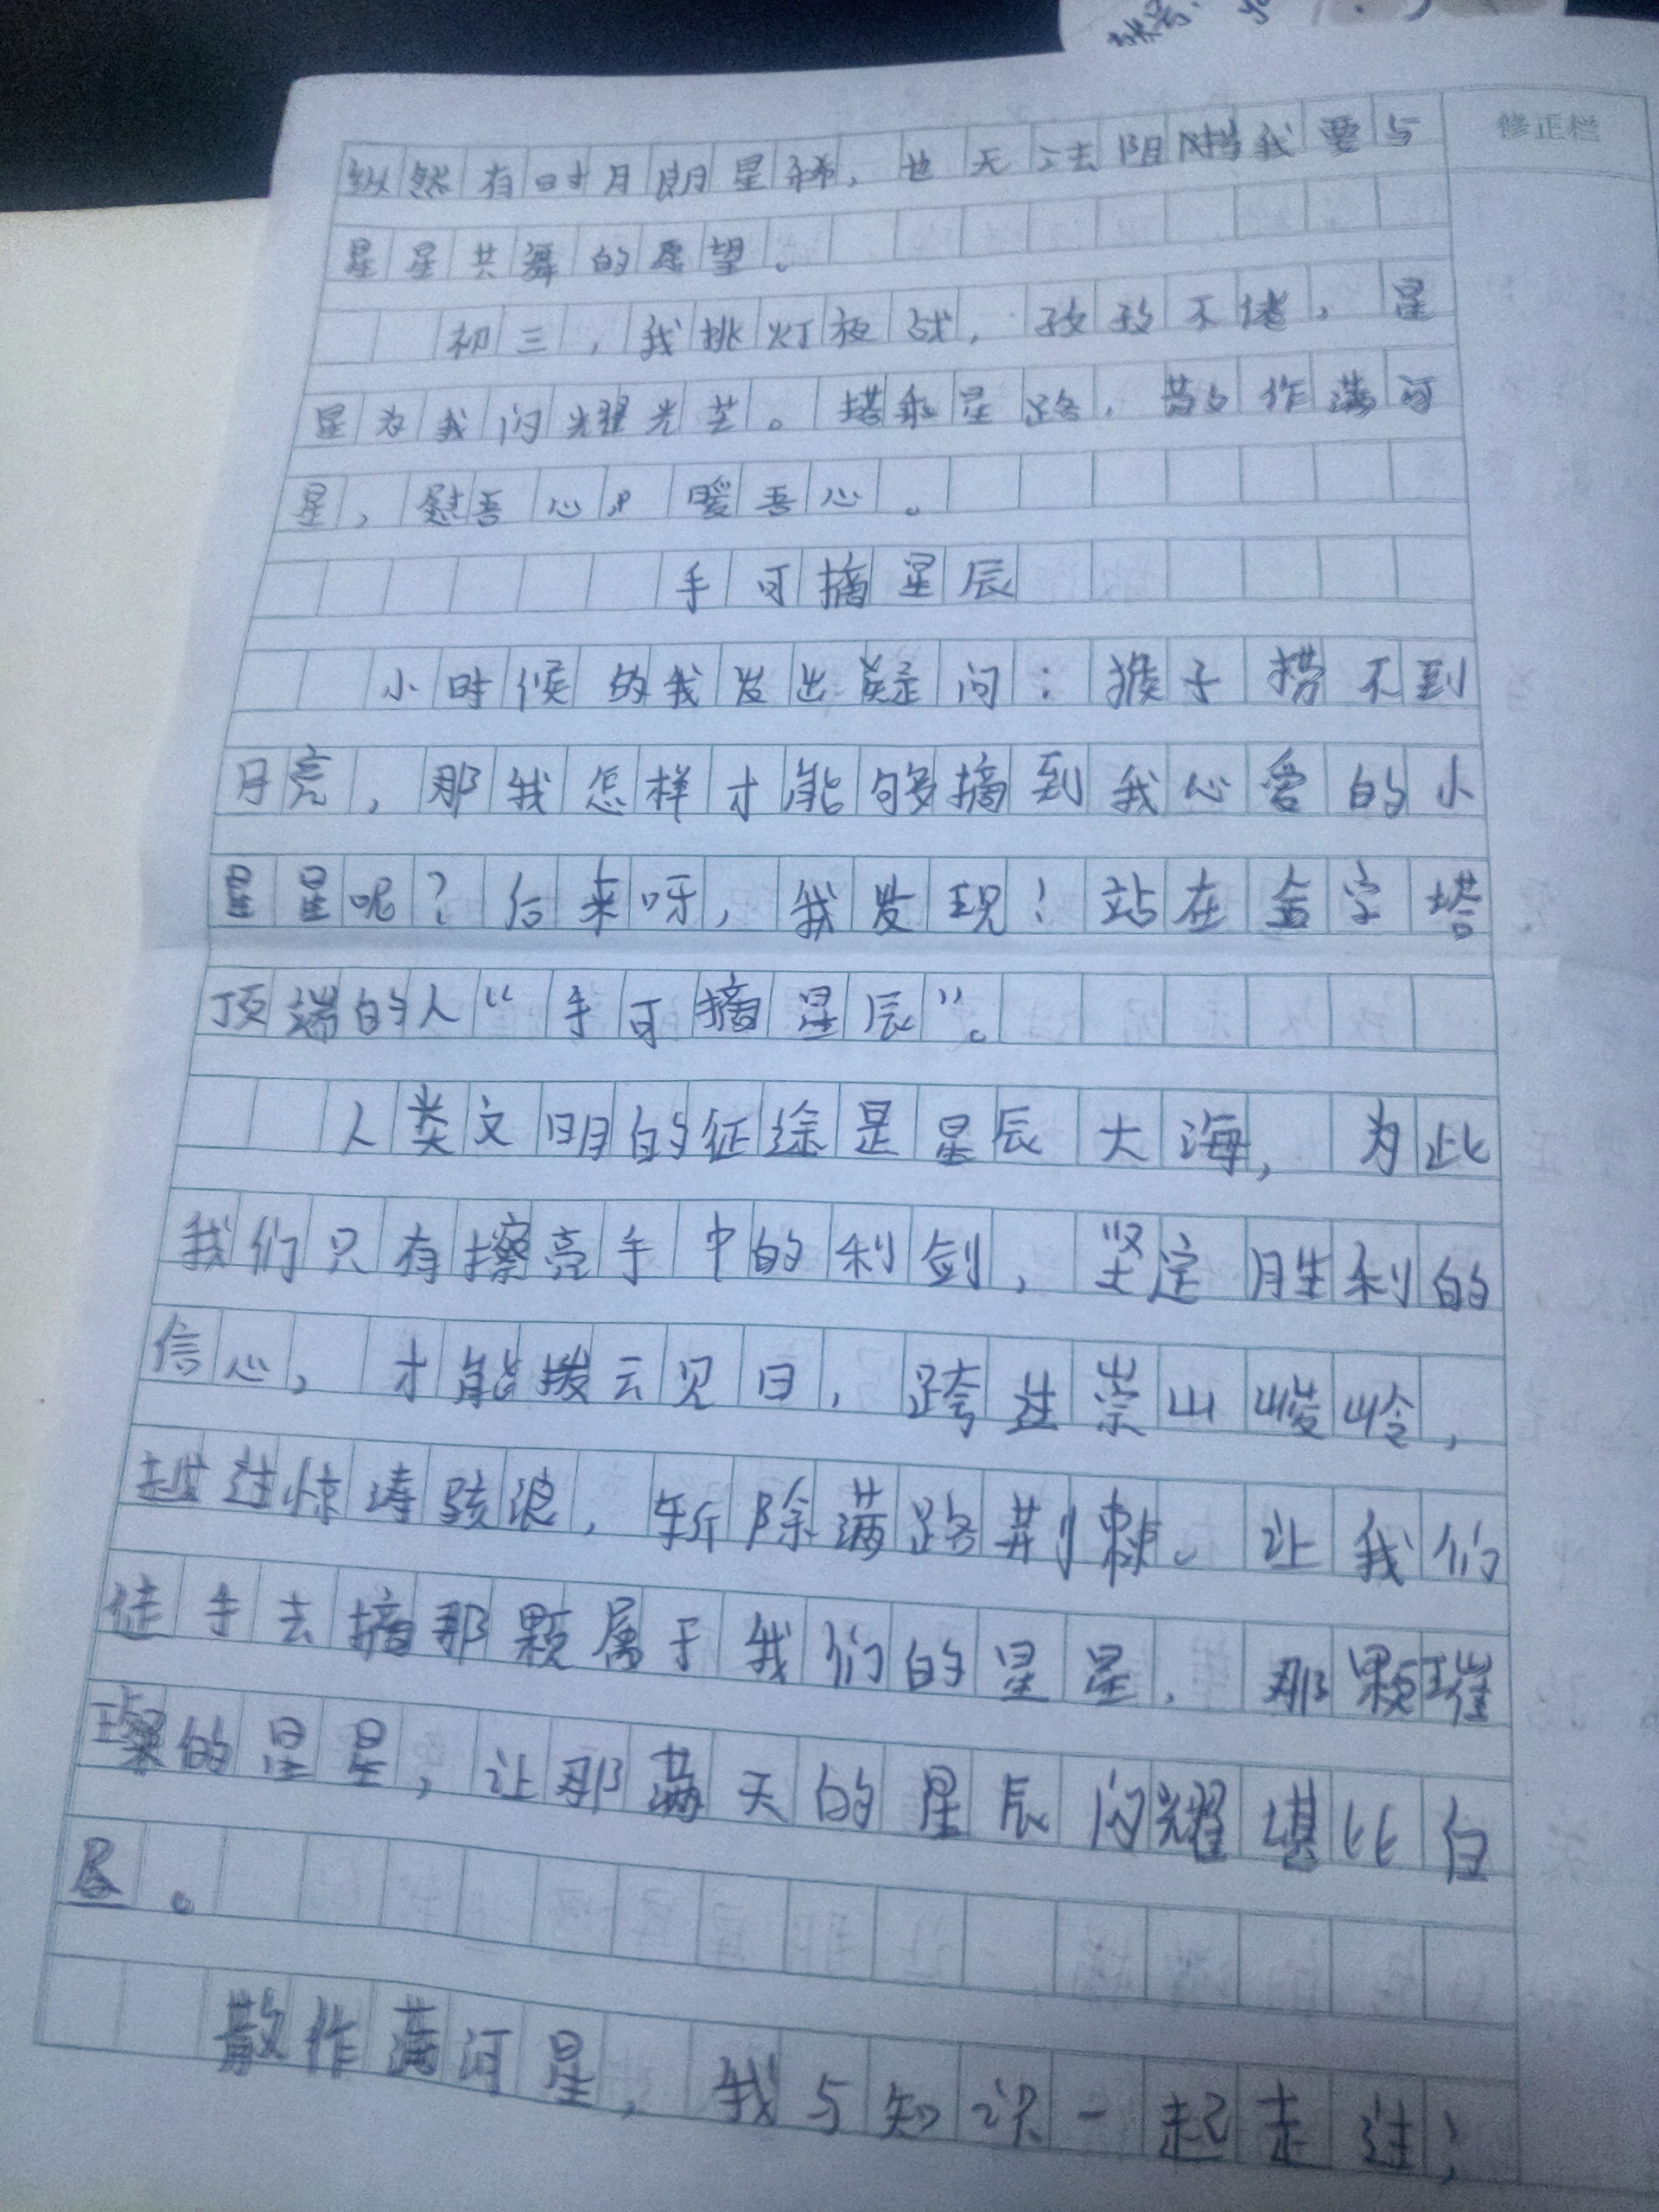 修正栏
纵然有时月朗星稀，也无法阻挡我要与
星星共舞的愿望。
初三，我挑灯夜战，孜孜不倦，星
星为我闪耀光芒。搭乘星路，散作满河
星，慰吾心，暖吾心。
手可摘星辰
小时候的我发出疑问：猴子捞不到
月亮，那我怎样才能够摘到我心爱的小
星星呢？后来呀，我发现！站在金字塔
顶端的人“手可摘星辰”。
人类文明的征途是星辰大海，为此
我们只有擦亮手中的利剑，坚定胜利的
信心，才能拨云见日，跨过崇山峻岭，
越过惊涛骇浪，斩除满路荆棘。让我们
徒手去摘那颗属于我们的星星，那颗璀
璨的星星，让那满天的星辰闪耀堪比白
昼。
散作满河星，我与知识一起走过；